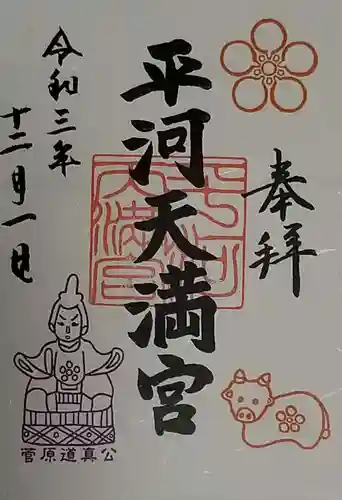 奉拝
平河天満宮
令和三年
十二月一日
平河
天満宮
菅原道真公